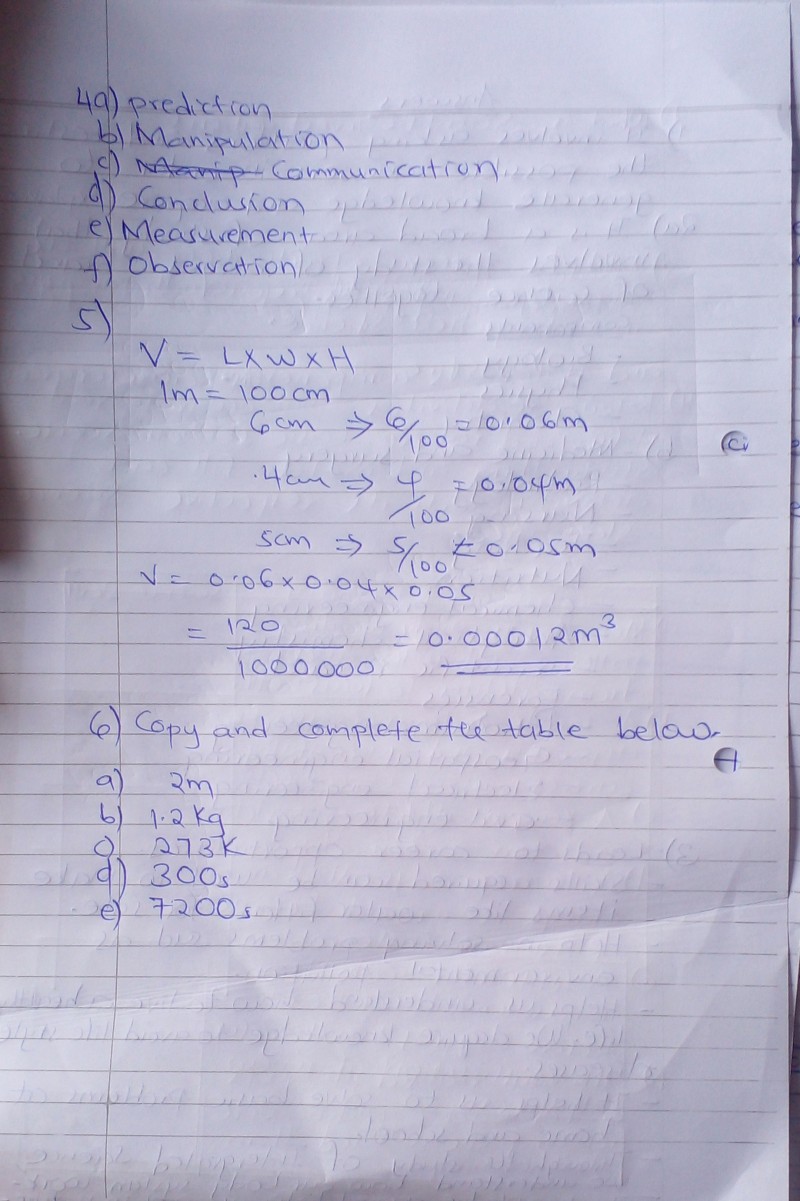 4a) prediction
b) Manipulation
c) Manip Communication
d) Conclusion
e) Measurement
f) Observation
5)
V = L x W x H
1m = 100cm
6cm ⇒ 6/100 = 0.06m
.4cm ⇒ 4/100 = 0.04m
5cm ⇒ 5/100 = 0.05m
V = 0.06 x 0.04 x 0.05
= 120/1000000 = 0.00012m³
6) Copy and complete the table below
a) 2m
b) 1.2 Kg
c) 273K
d) 300s
e) 7200s